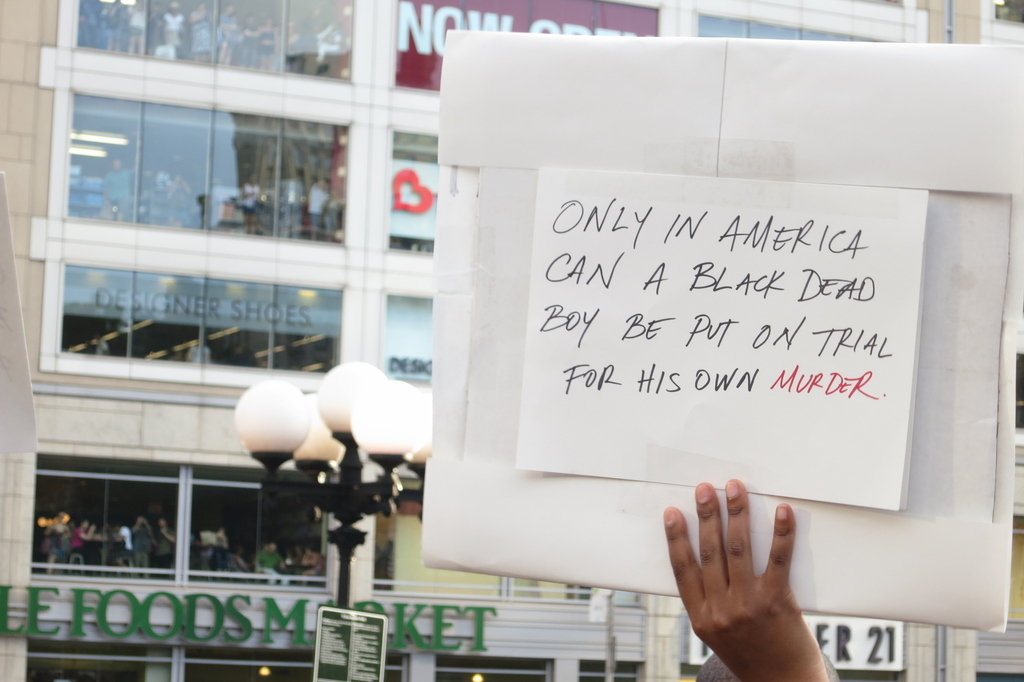 NOW
DESIGNER SHOES
ONLY IN AMERICA
CAN A BLACK DEAD
BOY BE PUT ON TRIAL
FOR HIS OWN MURDER.
LE FOODS MARKET
ER 21